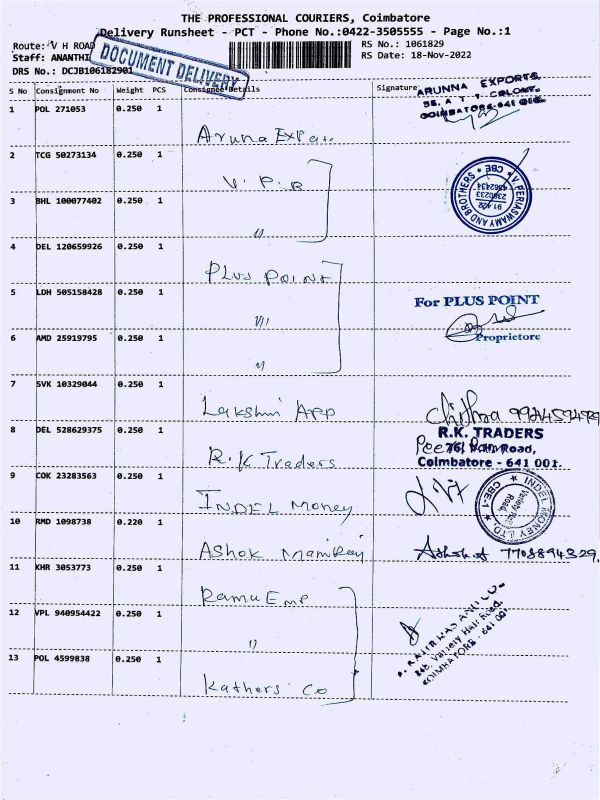 THE PROFESSIONAL COURIERS, Coimbatore
Delivery Runsheet - PCT - Phone No.:0422-3505555 - Page No.:1
Route: V H ROAD
RS No.: 1061829
Staff: ANANTHI
RS Date: 18-Nov-2022
DRS No.: DCJB106182901
DOCUMENT DELIVERY
S No Consignment No Weight PCS Consignee Details Signature
ARUNNA EXPORTS
COIMBATORE-641
1 POL 271053 0.250 1
Aruna Expo
2 TCG 50273134 0.250 1
V. P. B
V. PERIASWAMY AND BROTHERS * CBE *
3 BHL 100077402 0.250 1
"
4 DEL 120659926 0.250 1
PLUS POINT
5 LDH 505158428 0.250 1
"
For PLUS POINT
Proprietore
6 AMD 25919795 0.250 1
"
7 SVK 10329044 0.250 1
Lakshmi APP
Chithra
8 DEL 528629375 0.250 1
R.K Traders
R.K. TRADERS
Coimbatore - 641 001.
9 COK 23283563 0.250 1
INDEL Money
INDEL MONEY LTD. * CBE-1 *
Variety Hall Road,
10 RMD 1098738 0.220 1
Ashok
Ashok 7708894329.
11 KHR 3053773 0.250 1
Ramu Emp
12 VPL 940954422 0.250 1
"
Variety Hall Road,
COIMBATORE - 641 001
13 POL 4599838 0.250 1
Kathers Co